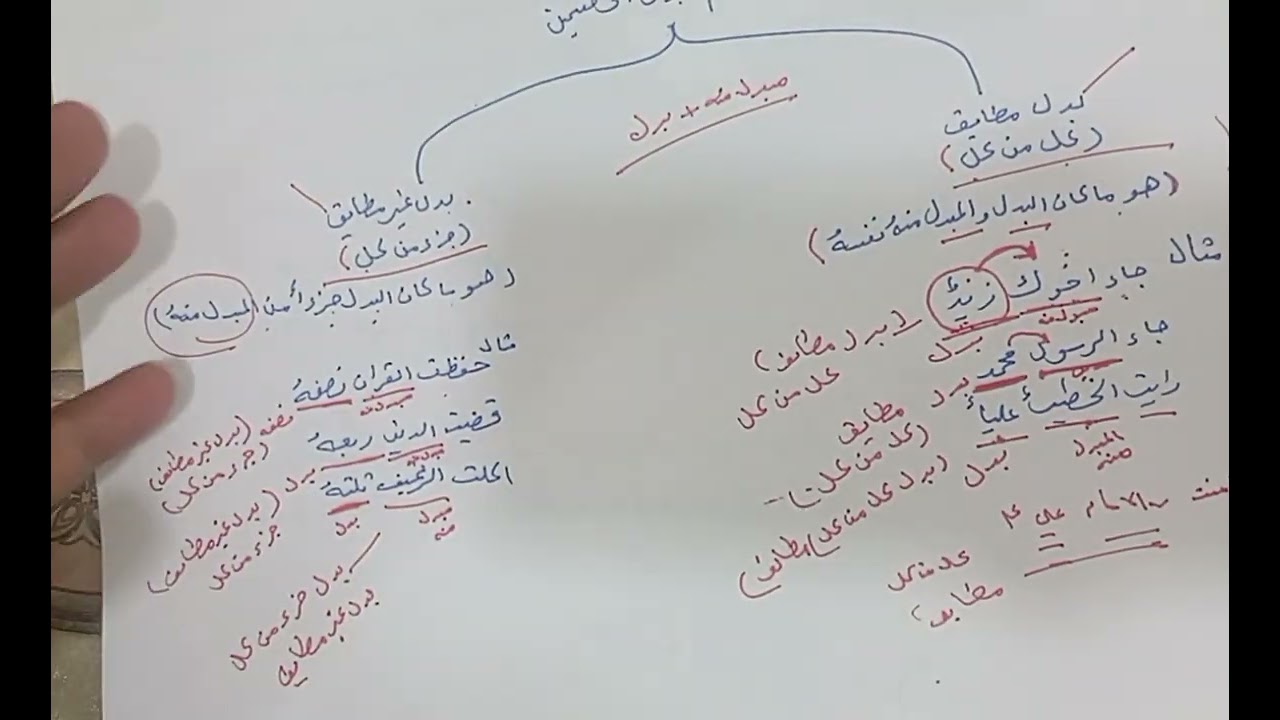 مبدل منه + بدل
بدل مطابق
(كل من كل)
(هو ما كان البدل والمبدل منهُ نفسهُ)
مثال جاء اخوك زيدٌ
مبدل منه
بدل
(بدل مطابق)
كل من كل
جاء الرسول محمد
بدل مطابق
(كل من كل)
رايت الخطيبَ علياً
المبدل منه
بدل
(بدل كل من كل) مطابق
الامام علي
كل من كل
مطابق
بدل غير مطابق
(جزء من كل)
(هو ما كان البدل جزءاً من المبدل منهُ)
مثال
حفظت القران نصفهُ
مبدل منه
نصفه (بدل غير مطابق)
(جزء من كل)
قضيت الدين ربعهُ
مبدل منه
بدل (بدل غير مطابق)
جزء من كل
اكلت الرغيف ثلثهُ
مبدل منه
بدل
بدل جزء من كل
بدل غير مطابق